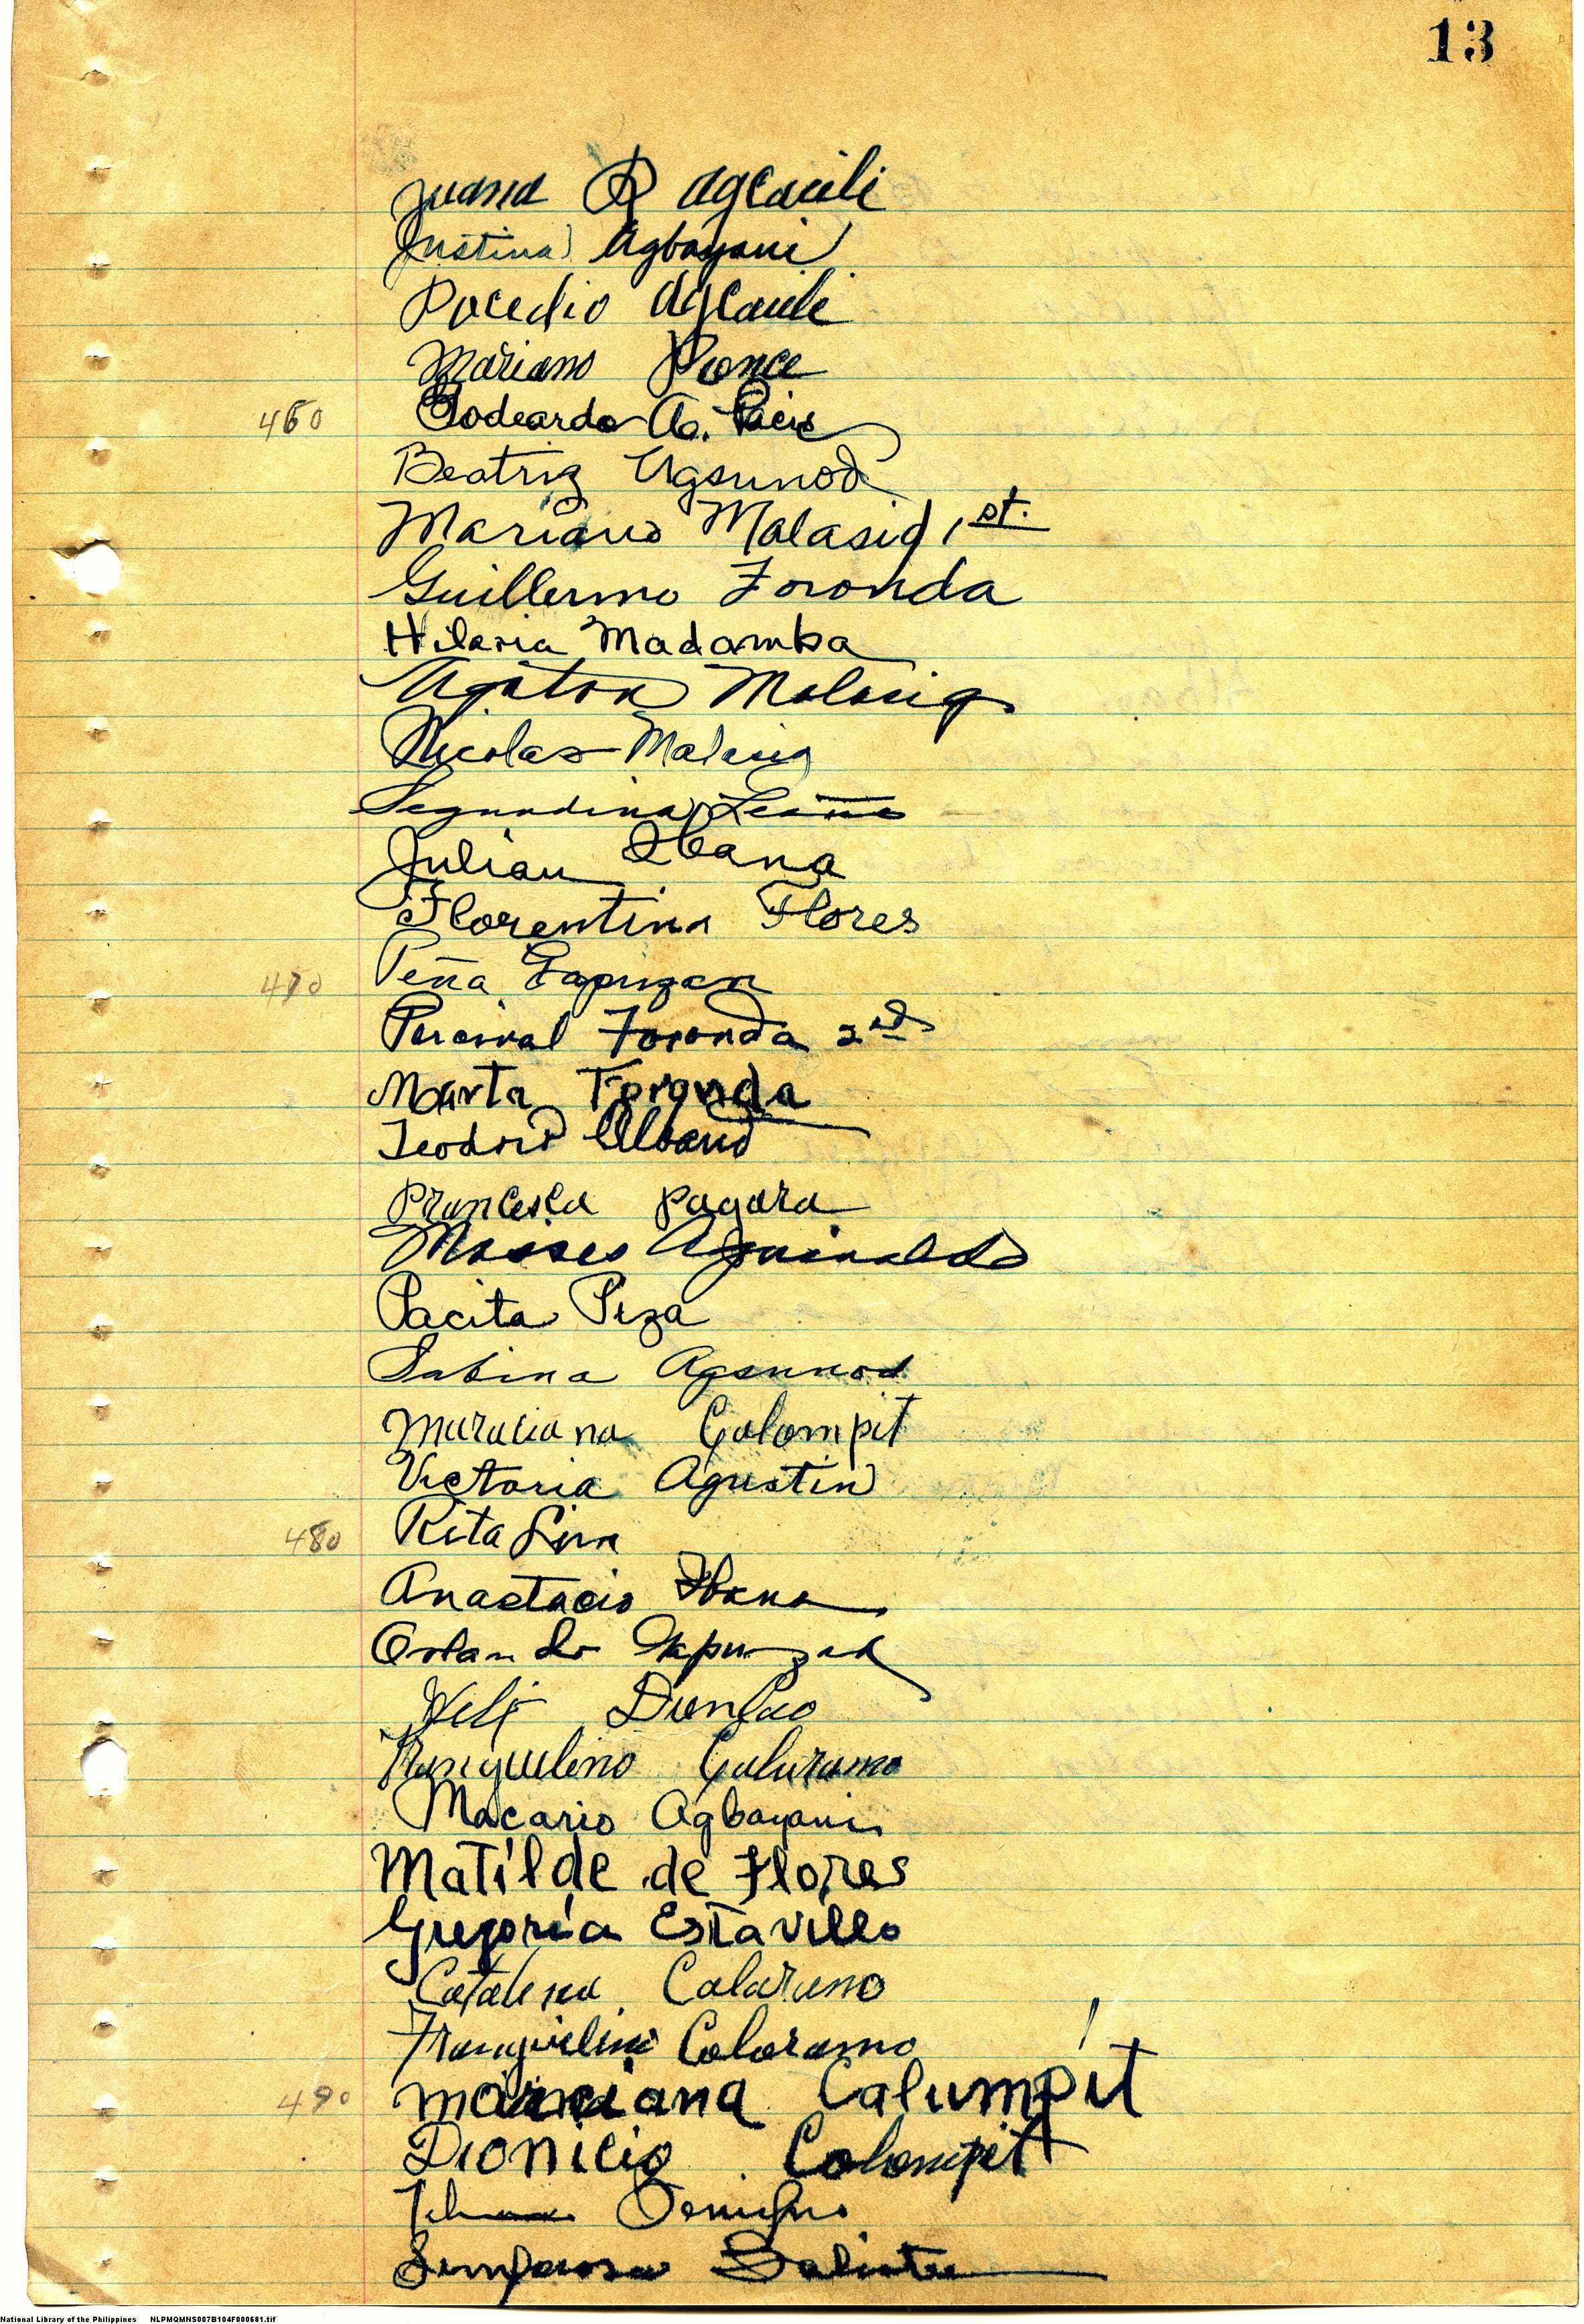 13
Juana R Agcaili
Justina Agbayani
Pocedio Agcaili
Mariano Ponce
460 Godeardo A. Pacis
Beatriz Agsunod
Mariano Malasig 1st.
Guillermo Foronda
Hilaria Madamba
Agaton Malasig
Nicolas Malasig
Segundina Leaño
Julian Ibana
Florentina Flores
470 Peña Gapuzan
Percival Foronda 2nd
Marta Foronda
Teodoro Albano
Francisca Pagara
Moises Aguinaldo
Pacita Piza
Sabina Agsunod
Maraciana Calompit
Victoria Agustin
480 Rita Lim
Anastacio Ibana
Orlando Gapuzan
Dionicio
Tranquilino Calaramo
Macario Agbayani
Matilde de Flores
Gregoria Estavillo
Catalina Calaramo
Tranquilino Coloramo
490 Marciana Calumpit
Dionicio Colompit
Benigno
Simforosa Baluten
National Library of the Philippines NLPMQMNS007B104F000681.tif